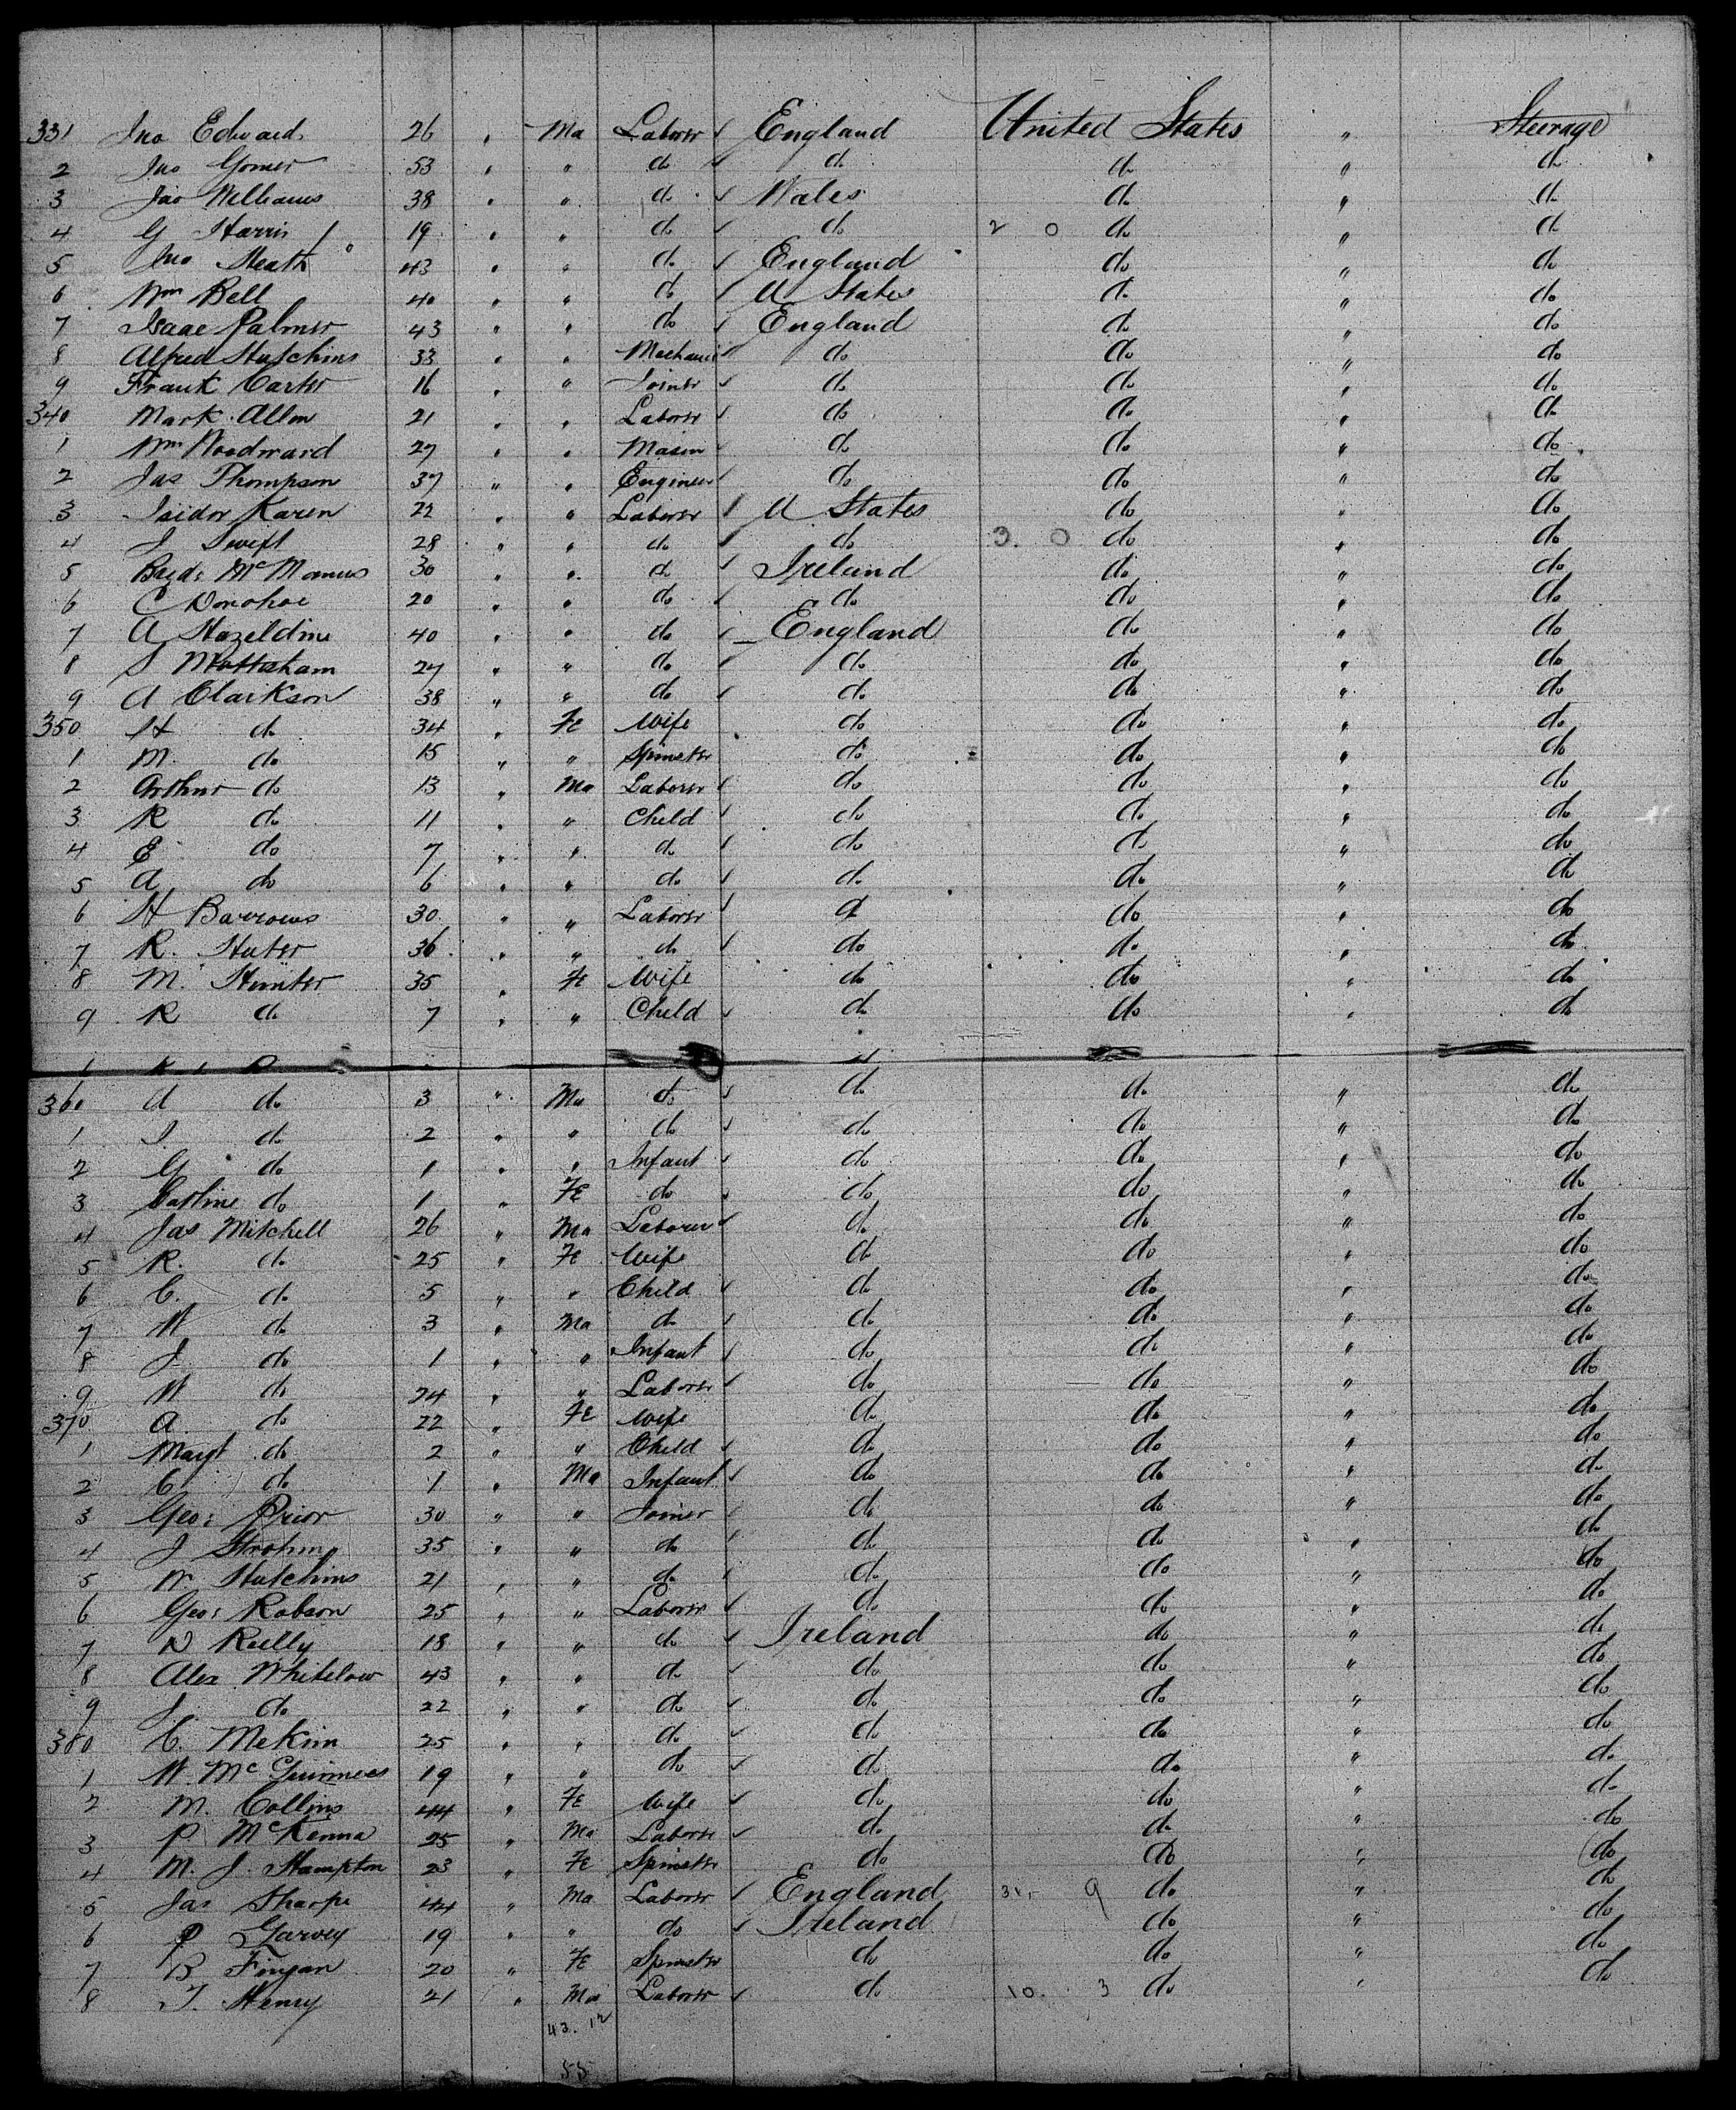 331 Jno Edwards 26 " Ma Laborer ✓ England United States " Steerage
2 Jno Gomer 53 " " do ✓ do do " do
3 Jno Williams 38 " " do ✓ Wales do " do
4 G Harris 19 " " do ✓ do 2 0 do " do
5 Jno Heath 43 " " do ✓ England do " do
6 Wm Bell 40 " " do ✓ U States do " do
7 Isaac Palmer 43 " " do ✓ England do " do
8 Alfred Hutchins 33 " " Mechanic ✓ do do " do
9 Frank Carter 16 " " Joiner ✓ do do " do
340 Mark Allen 21 " " Laborer ✓ do do " do
1 Wm Woodward 27 " " Mason ✓ do do " do
2 Jas Thompson 37 " " Engineer ✓ do do " do
3 Isidor Karen 22 " " Laborer ✓ U States do " do
4 J Swift 28 " " do ✓ do 3. 0 do " do
5 McManus 30 " " do ✓ Ireland do " do
6 C Donohoe 20 " " do ✓ do do " do
7 A Hazeldine 40 " " do ✓ England do " do
8 S Mottasham 27 " " do ✓ do do " do
9 A Clarkson 38 " " do ✓ do do " do
350 H do 34 " Fe Wife do do " do
1 M. do 15 " " Spinster do do " do
2 Arthur do 13 " Ma Laborer ✓ do do " do
3 R do 11 " " Child ✓ do do " do
4 E do 7 " " do ✓ do do " do
5 A do 6 " " do ✓ do do " do
6 H Barrows 30 " " Laborer ✓ do do " do
7 R. Hunter 36 " " do ✓ do do " do
8 M. Hunter 35 " Fe Wife do do " do
9 R do 7 " " Child ✓ do do " do
360 A do 3 " Ma do ✓ do do " do
1 J do 2 " " do ✓ do do " do
2 G do 1 " " Infant ✓ do do " do
3 do 1 " Fe do ✓ do do " do
4 Jas Mitchell 26 " Ma Laborer ✓ do do " do
5 R. do 25 " Fe Wife do do " do
6 C. do 5 " " Child ✓ do do " do
7 W do 3 " Ma do ✓ do do " do
8 J do 1 " " Infant ✓ do do " do
9 W do 24 " " Laborer ✓ do do " do
370 A. do 22 " Fe Wife do do " do
1 Margt do 2 " " Child ✓ do do " do
2 C do 1 " Ma Infant ✓ do do " do
3 Geo: Prior 30 " " Joiner ✓ do do " do
4 J Strohm 35 " " do ✓ do do " do
5 W Hutchins 21 " " do ✓ do do " do
6 Geo: Robson 25 " " Laborer ✓ do do " do
7 D Reilly 18 " " do ✓ Ireland do " do
8 Alex Whitelaw 43 " " do ✓ do do " do
9 J do 22 " " do ✓ do do " do
380 C. McKim 25 " " do ✓ do do " do
1 W. McGuinness 19 " " do ✓ do do " do
2 M. Collins 44 " Fe Wife ✓ do do " do
3 P McKenna 25 " Ma Laborer ✓ do do " do
4 M. J. Hampton 23 " Fe Spinster do do " do
5 Jas Sharpe 44 " Ma Laborer ✓ England 31. 9 do " do
6 P Garvey 19 " " do ✓ Ireland do " do
7 B Fingan 20 " Fe Spinster do do " do
8 T. Henry 21 " Ma Laborer ✓ do 10. 3 do " do
43. 12
55